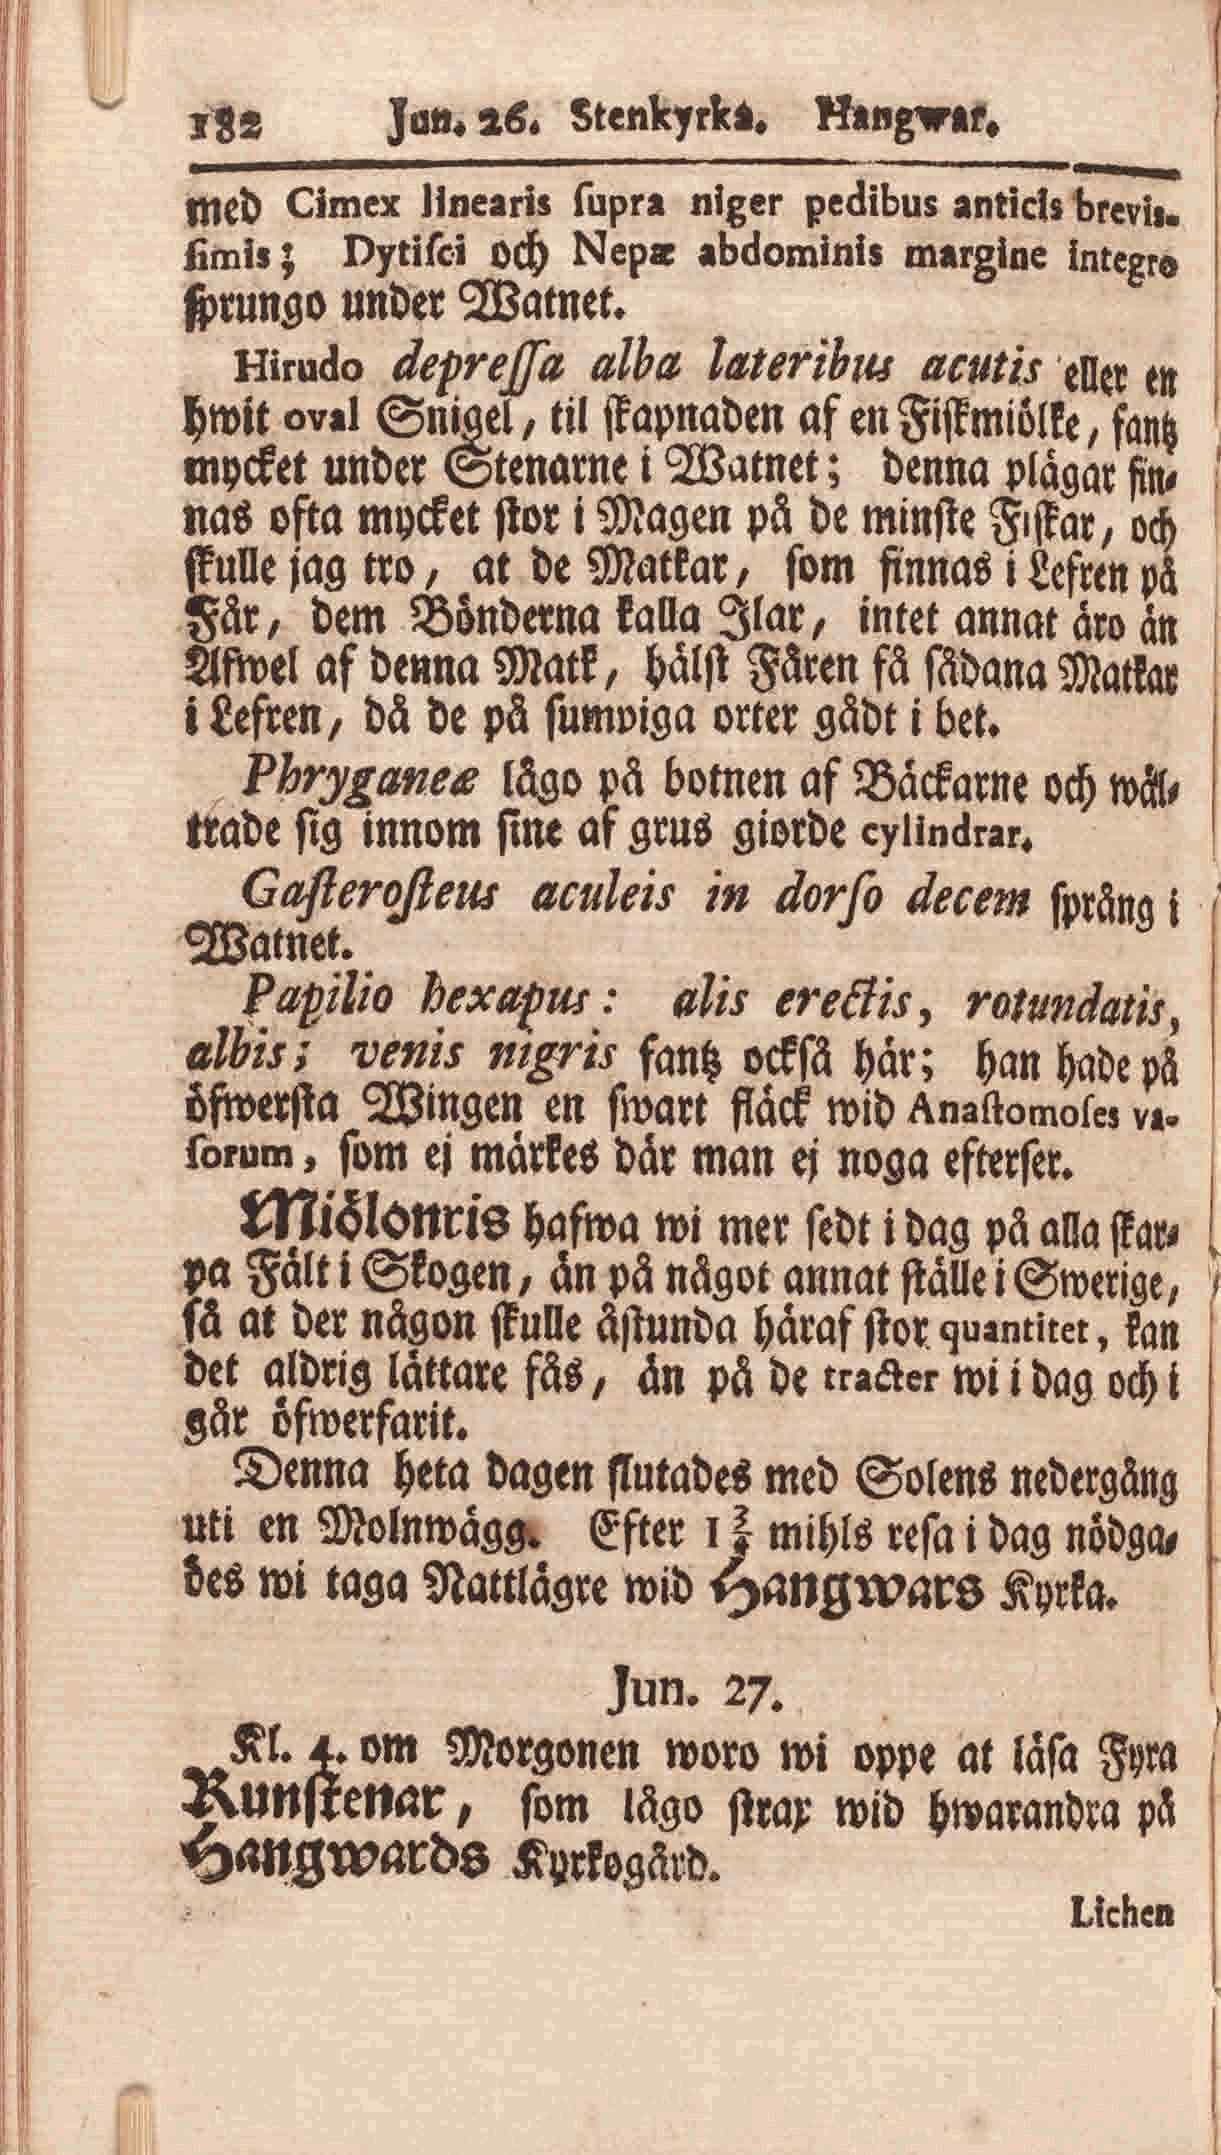 182 Jun. 26. Stenkyrka. Hangwar.
med Cimex linearis ſupra niger pedibus anticis brevis-
ſimis; Dytiſci och Nepæ abdominis margine integro
ſprungo under Watnet.
Hirudo depreſſa alba lateribus acutis eller en
hwit oval Snigel, til ſkapnaden af en Fiſkmiölke, fantz
mycket under Stenarne i Watnet; denna plägar fin-
nas ofta mycket ſtor i Magen på de minſte Fiſkar, och
ſkulle jag tro, at de Matkar, ſom finnas i Lefren på
Får, dem Bönderna kalla Ilar, intet annat äro än
Afwel af denna Matk, hälſt Fåren få ſådana Matkar
i Lefren, då de på ſumpiga orter gådt i bet.
Phryganeæ lågo på botnen af Bäckarne och wäl-
trade ſig innom ſine af grus giorde cylindrar.
Gaſteroſteus aculeis in dorſo decem ſprång i
Watnet.
Papilio hexapus: alis erectis, rotundatis,
albis; venis nigris fantz ockſå här; han hade på
öfwerſta Wingen en ſwart fläck wid Anaſtomoſes va-
ſorum, ſom ej märkes där man ej noga efterſer.
Miölonris hafwa wi mer ſedt i dag på alla ſkar-
pa Fält i Skogen, än på något annat ſtälle i Swerige,
ſå at der någon ſkulle åſtunda häraf ſtor quantitet, kan
det aldrig lättare fås, än på de tracter wi i dag och i
går öfwerfarit.
Denna heta dagen ſlutades med Solens nedergång
uti en Molnwägg. Efter 1 3/4 mihls reſa i dag nödga-
des wi taga Nattlägre wid Hangwars Kyrka.
Jun. 27.
Kl. 4. om Morgonen woro wi oppe at läſa Fyra
Runſtenar, ſom lågo ſtrax wid hwarandra på
Hangwards Kyrkogård.
Lichen